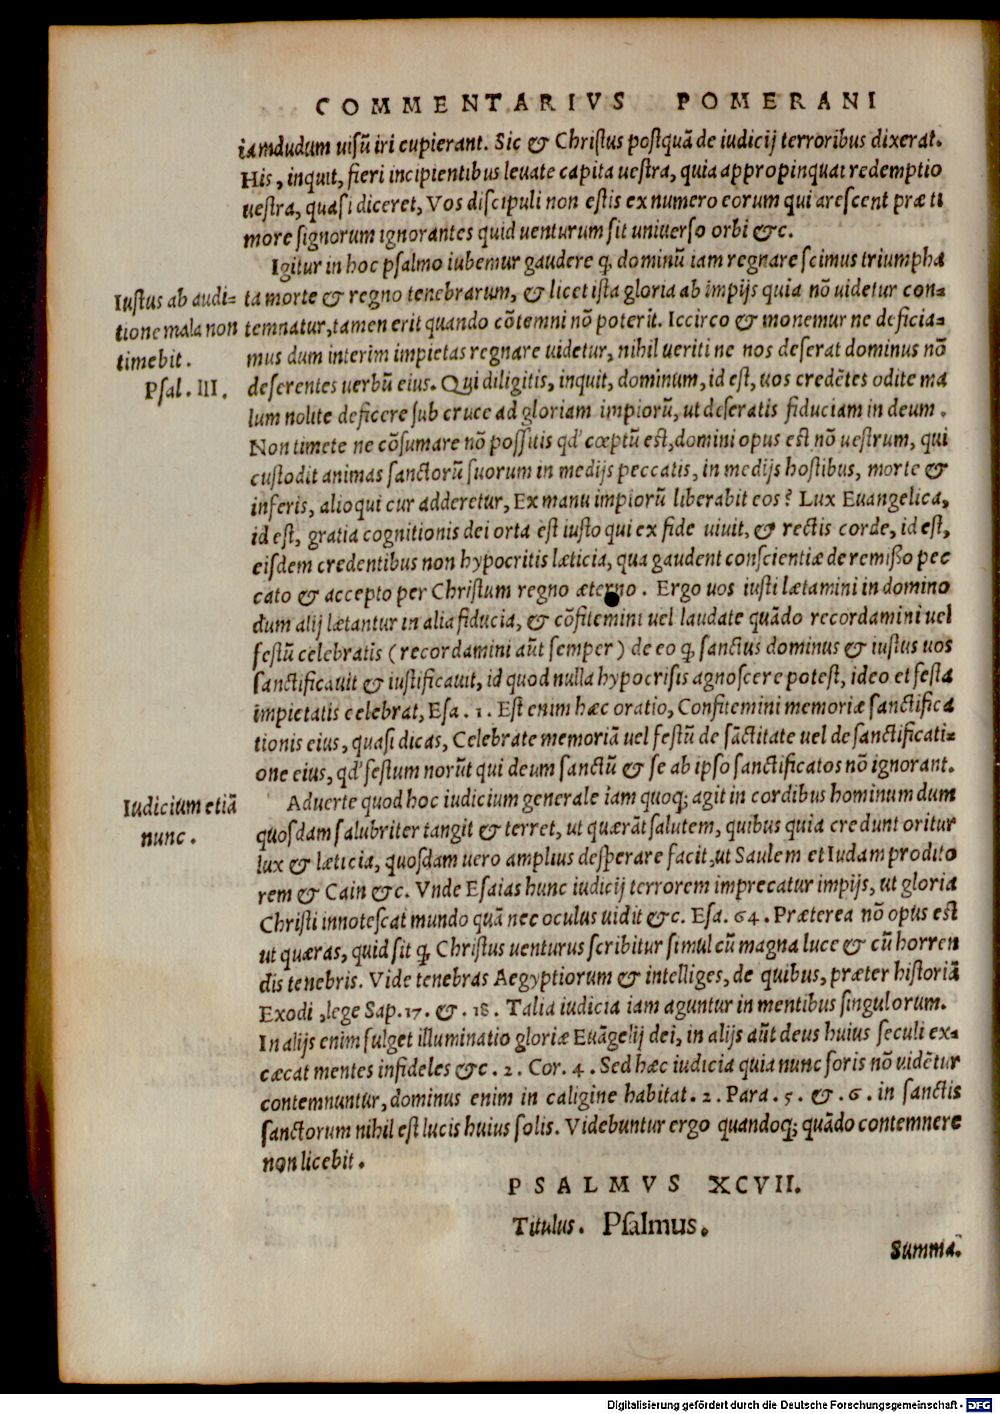 COMMENTARIVS POMERANI
iamdudum uisũ iri cupierant. Sic & Christus postquã de iudicij terroribus dixerat.
His, inquit, fieri incipientibus leuate capita uestra, quia appropinquat redemptio
uestra, quasi diceret, Vos discipuli non estis ex numero eorum qui arescent præ ti
more signorum ignorantes quid uenturum sit uniuerso orbi &c.
Igitur in hoc psalmo iubemur gaudere q, dominũ iam regnare scimus triumpha
Iustus ab audi=
tione mala non
timebit.
Psal. III.
ta morte & regno tenebrarum, & licet ista gloria ab impijs quia nõ uidetur con=
temnatur, tamen erit quando cõtemni nõ poterit. Iccirco & monemur ne deficia=
mus dum interim impietas regnare uidetur, nihil ueriti ne nos deserat dominus nõ
deserentes uerbũ eius. Qui diligitis, inquit, dominum, id est, uos credẽtes odite ma
lum nolite deficere sub cruce ad gloriam impiorũ, ut deseratis fiduciam in deum.
Non timete ne cõsumare nõ possitis qđ cœptũ est, domini opus est nõ uestrum, qui
custodit animas sanctorũ suorum in medijs peccatis, in medijs hostibus, morte &
inferis, alioqui cur adderetur, Ex manu impiorũ liberabit eos? Lux Euangelica,
id est, gratia cognitionis dei orta est iusto qui ex fide uiuit, & rectis corde, id est,
eisdem credentibus non hypocritis læticia, qua gaudent conscientiæ de remißo pec
cato & accepto per Christum regno æterno. Ergo uos iusti lætamini in domino
dum alij lætantur in alia fiducia, & cõfitemini uel laudate quãdo recordamini uel
festũ celebratis (recordamini aũt semper) de eo q, sanctus dominus & iustus uos
sanctificauit & iustificauit, id quod nulla hypocrisis agnoscere potest, ideo et festa
impietatis celebrat, Esa. 1. Est enim hæc oratio, Confitemini memoriæ sanctifica
tionis eius, quasi dicas, Celebrate memoriã uel festũ de sãctitate uel de sanctificati=
one eius, qđ festum norũt qui deum sanctũ & se ab ipso sanctificatos nõ ignorant.
Iudicium etiã
nunc.
Aduerte quod hoc iudicium generale iam quoq; agit in cordibus hominum dum
quosdam salubriter tangit & terret, ut quærãt salutem, quibus quia credunt oritur
lux & læticia, quosdam uero amplius desperare facit, ut Saulem et Iudam prodito
rem & Cain &c. Vnde Esaias hunc iudicij terrorem imprecatur impijs, ut gloria
Christi innotescat mundo quã nec oculus uidit &c. Esa. 64. Præterea nõ opus est
ut quæras, quid sit q, Christus uenturus scribitur simul cũ magna luce & cũ horren
dis tenebris. Vide tenebras Aegyptiorum & intelliges, de quibus, præter historiã
Exodi, lege Sap. 17. &. 18. Talia iudicia iam aguntur in mentibus singulorum.
In alijs enim fulget illuminatio gloriæ Euãgelij dei, in alijs aũt deus huius seculi ex=
cæcat mentes infideles &c. 2. Cor. 4. Sed hæc iudicia quia nunc foris nõ vidẽtur
contemnuntur, dominus enim in caligine habitat. 2. Para. 5. &. 6. in sanctis
sanctorum nihil est lucis huius solis. Videbuntur ergo quandoq; quãdo contemnere
non licebit.
PSALMVS XCVII.
Titulus. Psalmus.
Summa.
Digitalisierung gefördert durch die Deutsche Forschungsgemeinschaft - DFG